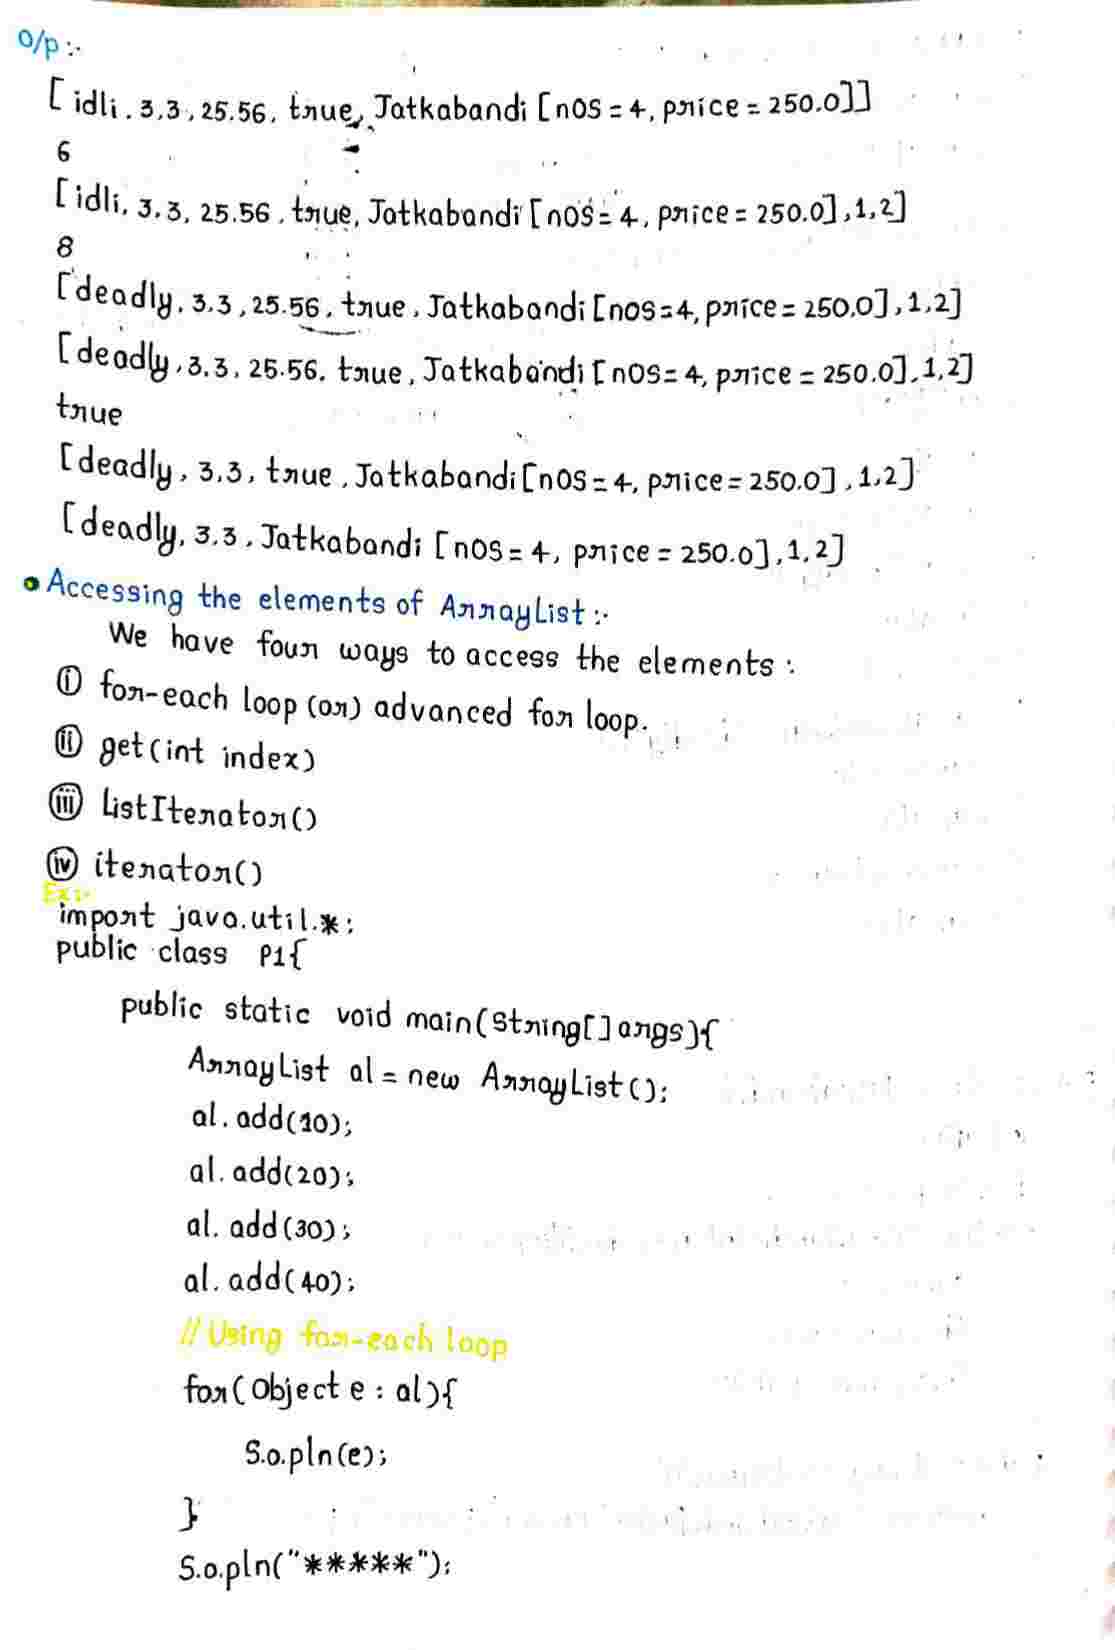 O/p :-
[idli, 3,3, 25.56, true, Jatkabandi [nos=4, price=250.0]]
6
[idli, 3,3, 25.56, true, Jatkabandi [nos=4, price=250.0],1,2]
8
[deadly, 3,3, 25.56, true, Jatkabandi [nos=4, price=250.0],1,2]
[deadly, 3,3, 25.56, true, Jatkabandi [nos=4, price=250.0],1,2]
true
[deadly, 3,3, true, Jatkabandi [nos=4, price=250.0],1,2]
[deadly, 3,3, Jatkabandi [nos=4, price=250.0],1,2]
• Accessing the elements of ArrayList :-
We have four ways to access the elements :
(i) for-each loop (or) advanced for loop.
(ii) get(int index)
(iii) listIterator()
(iv) iterator()
Ex:-
import java.util.*;
public class P1{
public static void main(String[] args){
ArrayList al = new ArrayList();
al.add(10);
al.add(20);
al.add(30);
al.add(40);
// Using for-each loop
for(Object e : al){
S.o.pln(e);
}
S.o.pln("*****");